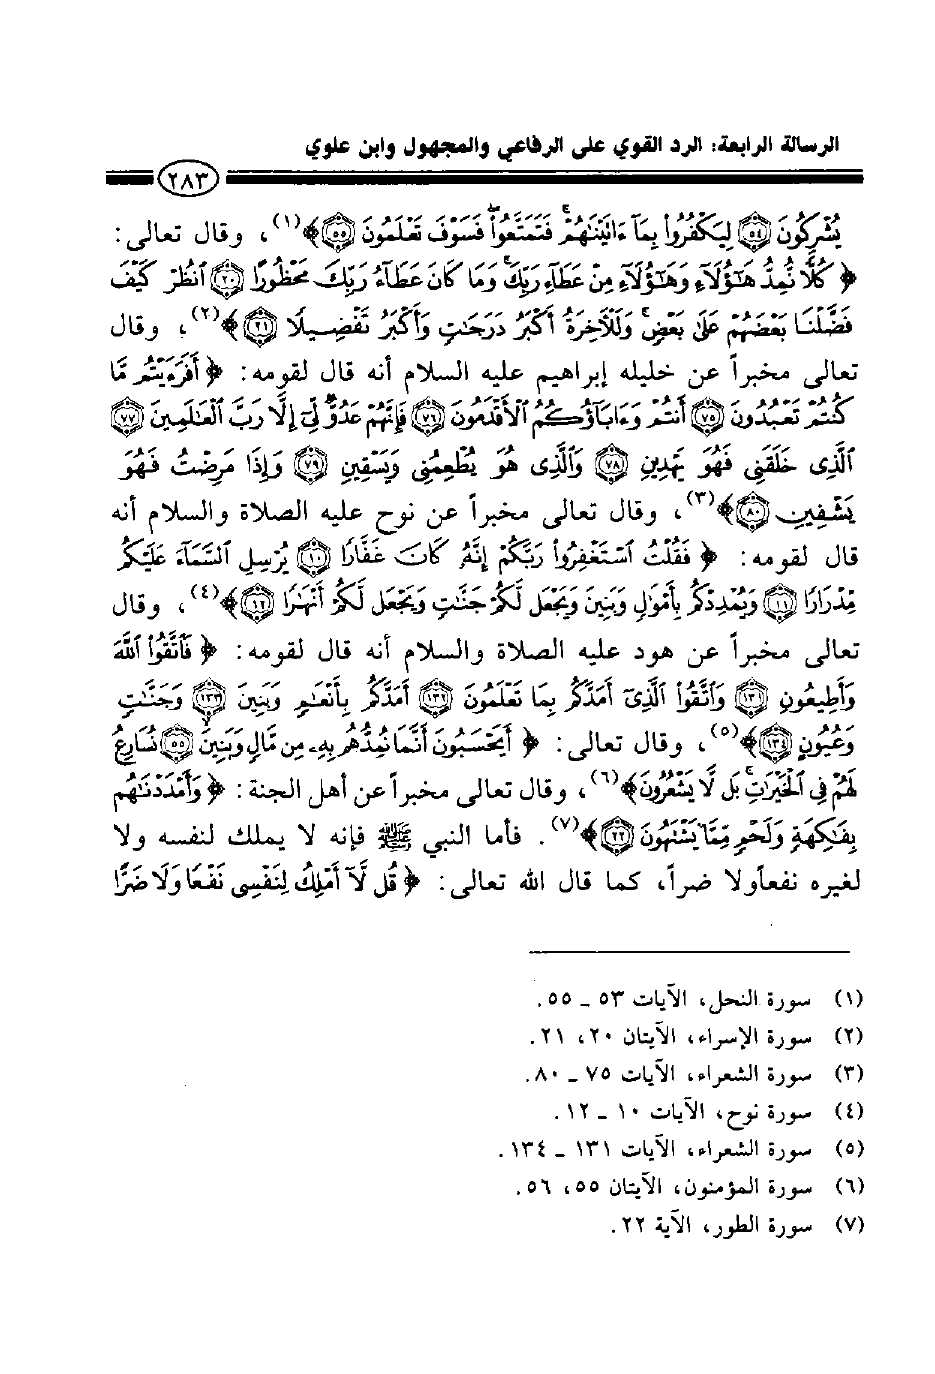 الرسالة الرابعة: الرد القوي على الرفاعي والمجهول وابن علوي
٢٨٣
يُشْرِكُونَ ﴿٥٤﴾ لِيَكْفُرُوا۟ بِمَآ ءَاتَيْنَـٰهُمْ ۚ فَتَمَتَّعُوا۟ ۖ فَسَوْفَ تَعْلَمُونَ ﴿٥٥﴾﴾(١)، وقال تعالى:
﴿كُلًّا نُّمِدُّ هَـٰٓؤُلَآءِ وَهَـٰٓؤُلَآءِ مِنْ عَطَآءِ رَبِّكَ ۚ وَمَا كَانَ عَطَآءُ رَبِّكَ مَحْظُورًا ﴿٢٠﴾ ٱنظُرْ كَيْفَ
فَضَّلْنَا بَعْضَهُمْ عَلَىٰ بَعْضٍ ۚ وَلَلْـَٔاخِرَةُ أَكْبَرُ دَرَجَـٰتٍ وَأَكْبَرُ تَفْضِيلًا ﴿٢١﴾﴾(٢)، وقال
تعالى مخبراً عن خليله إبراهيم عليه السلام أنه قال لقومه: ﴿أَفَرَءَيْتُم مَّا
كُنتُمْ تَعْبُدُونَ ﴿٧٥﴾ أَنتُمْ وَءَابَآؤُكُمُ ٱلْأَقْدَمُونَ ﴿٧٦﴾ فَإِنَّهُمْ عَدُوٌّ لِّىٓ إِلَّا رَبَّ ٱلْعَـٰلَمِينَ ﴿٧٧﴾
ٱلَّذِى خَلَقَنِى فَهُوَ يَهْدِينِ ﴿٧٨﴾ وَٱلَّذِى هُوَ يُطْعِمُنِى وَيَسْقِينِ ﴿٧٩﴾ وَإِذَا مَرِضْتُ فَهُوَ
يَشْفِينِ ﴿٨٠﴾﴾(٣)، وقال تعالى مخبراً عن نوح عليه الصلاة والسلام أنه
قال لقومه: ﴿فَقُلْتُ ٱسْتَغْفِرُوا۟ رَبَّكُمْ إِنَّهُۥ كَانَ غَفَّارًا ﴿١٠﴾ يُرْسِلِ ٱلسَّمَآءَ عَلَيْكُم
مِّدْرَارًا ﴿١١﴾ وَيُمْدِدْكُم بِأَمْوَٰلٍ وَبَنِينَ وَيَجْعَل لَّكُمْ جَنَّـٰتٍ وَيَجْعَل لَّكُمْ أَنْهَـٰرًا ﴿١٢﴾﴾(٤)، وقال
تعالى مخبراً عن هود عليه الصلاة والسلام أنه قال لقومه: ﴿فَٱتَّقُوا۟ ٱللَّهَ
وَأَطِيعُونِ ﴿١٣١﴾ وَٱتَّقُوا۟ ٱلَّذِىٓ أَمَدَّكُم بِمَا تَعْلَمُونَ ﴿١٣٢﴾ أَمَدَّكُم بِأَنْعَـٰمٍ وَبَنِينَ ﴿١٣٣﴾ وَجَنَّـٰتٍ
وَعُيُونٍ ﴿١٣٤﴾﴾(٥)، وقال تعالى: ﴿أَيَحْسَبُونَ أَنَّمَا نُمِدُّهُم بِهِۦ مِن مَّالٍ وَبَنِينَ ﴿٥٥﴾ نُسَارِعُ
لَهُمْ فِى ٱلْخَيْرَٰتِ ۚ بَل لَّا يَشْعُرُونَ﴾(٦)، وقال تعالى مخبراً عن أهل الجنة: ﴿وَأَمْدَدْنَـٰهُم
بِفَـٰكِهَةٍ وَلَحْمٍ مِّمَّا يَشْتَهُونَ ﴿٢٢﴾﴾(٧). فأما النبي ﷺ فإنه لا يملك لنفسه ولا
لغيره نفعاً ولا ضراً، كما قال الله تعالى: ﴿قُل لَّآ أَمْلِكُ لِنَفْسِى نَفْعًا وَلَا ضَرًّا
(١) سورة النحل، الآيات ٥٣ ـ ٥٥.
(٢) سورة الإسراء، الآيتان ٢٠، ٢١.
(٣) سورة الشعراء، الآيات ٧٥ ـ ٨٠.
(٤) سورة نوح، الآيات ١٠ ـ ١٢.
(٥) سورة الشعراء، الآيات ١٣١ ـ ١٣٤.
(٦) سورة المؤمنون، الآيتان ٥٥، ٥٦.
(٧) سورة الطور، الآية ٢٢.